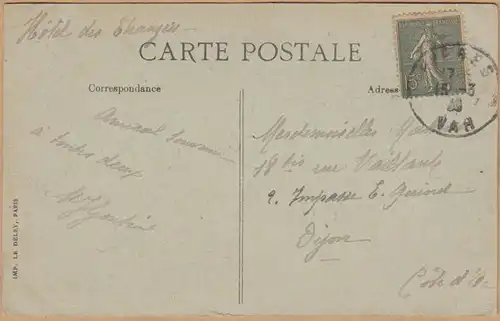 Hôtel des Étrangers
CARTE POSTALE
Correspondance
Adresse
HYERES
15 - 3
20
VAR
Amical souvenir
à toutes deux
Mesdemoiselles
18 bis rue Vaillant
2. Impasse E.
Dijon
Côte d'Or
IMP. LE DELEY, PARIS